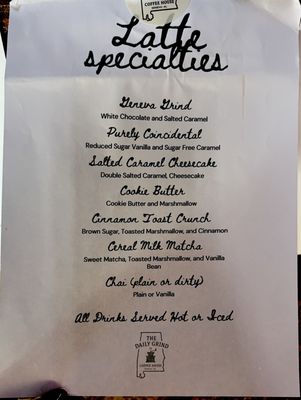 COFFEE HOUSE
Latte
specialties
Geneva Grind
White Chocolate and Salted Caramel
Purely Coincidental
Reduced Sugar Vanilla and Sugar Free Caramel
Salted Caramel Cheesecake
Double Salted Caramel, Cheesecake
Cookie Butter
Cookie Butter and Marshmallow
Cinnamon Toast Crunch
Brown Sugar, Toasted Marshmallow, and Cinnamon
Cereal Milk Matcha
Sweet Matcha, Toasted Marshmallow, and Vanilla
Bean
Chai (plain or dirty)
Plain or Vanilla
All Drinks Served Hot or Iced
THE
DAILY GRIND
COFFEE HOUSE